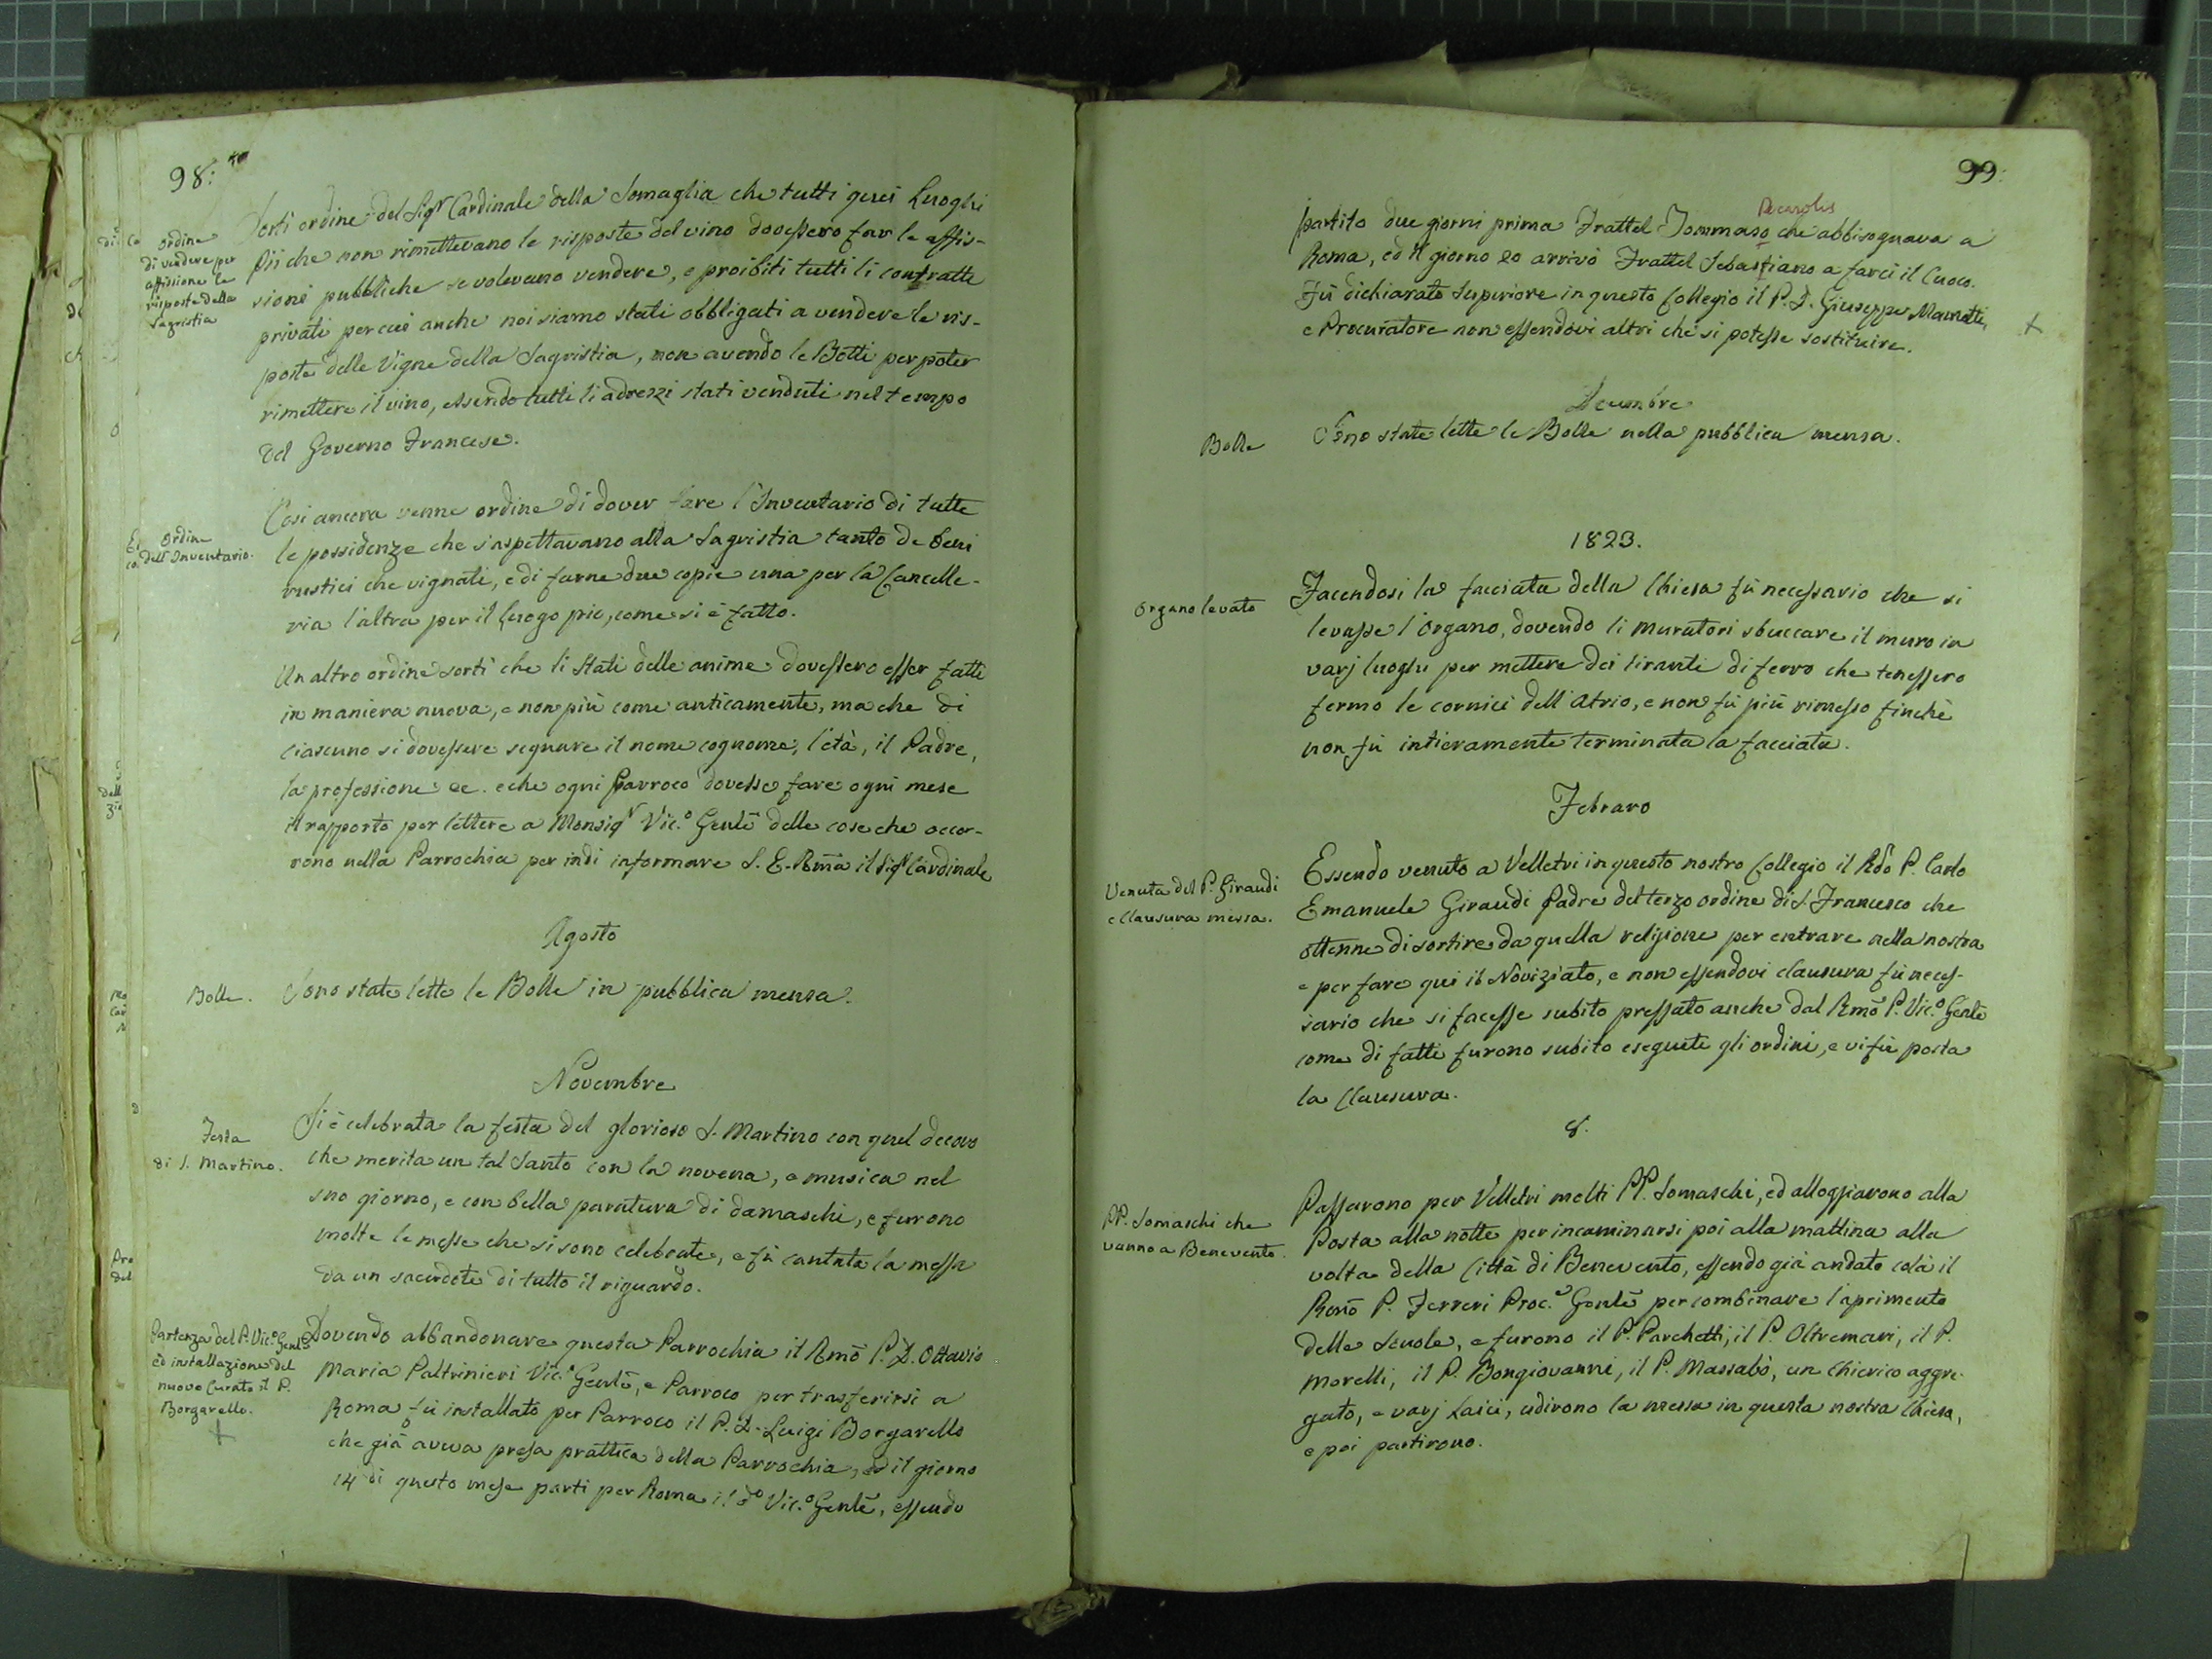 98:
ordine
di vendere per
affissione le
risposte della
Sagristia
Sortì ordine del Sigr Cardinale della Somaglia che tutti quei Luoghi
Pii che non rimettevano le risposte del vino dovessero far le affis-
sioni pubbliche se volevano vendere, e proibiti tutti li contratti
privati per cui anche noi siamo stati obbligati a vendere le ris-
poste delle Vigne della Sagristia, non avendo le Botti per poter
rimettere il vino, essendo tutti li adrezzi stati venduti nel tempo
del Governo Francese.
Ordine
dell'Inventario.
Così ancora venne ordine di dover fare l'Inventario di tutte
le possidenze che s'aspettavano alla Sagristia tanto de beni
rustici che vignati, e di farne due copie una per la Cancelle-
ria l'altra per il luogo pio, come si è fatto.
Un altro ordine sortì che li Stati delle anime dovessero esser fatti
in maniera nuova, e non più come anticamente, ma che di
ciascuno si dovessere segnare il nome cognome, l'età, il Padre,
la professione ec. e che ogni Parroco dovesse fare ogni mese
il rapporto per lettere a Monsigr Vic.o Genle delle cose che occor-
rono nella Parrochia per indi informare S. E. Rma il Sigr Cardinale
Agosto
Bolle.
Sono state lette le Bolle in pubblica mensa.
Novembre
Festa
di S. Martino.
Si è celebrata la festa del glorioso S. Martino con quel decoro
che merita un tal Santo con la novena, e musica nel
suo giorno, e con bella paratura di damaschi, e furono
molte le messe che si sono celebrate, e fù cantata la messa
da un sacerdote di tutto il riguardo.
Partenza del P. Vic.o Genle
ed installazione del
nuovo Curato il P.
Borgarello.
+
Dovendo abbandonare questa Parrochia il Rmo P. D. Ottavio
Maria Paltrinieri Vic.o Genle, e Parroco per trasferirsi a
Roma fù installato per Parroco il P. D. Luigi Borgarello
che già aveva presa prattica della Parrochia, ed il giorno
14 di questo mese partì per Roma il do Vic.o Genle, essendo
99:
Decarolis
partito due giorni prima Frattel Tommaso che abbisognava a
Roma, ed il giorno 20 arrivò Frattel Sebastiano a farci il Cuoco.
Fù dichiarato Superiore in questo Collegio il P. D. Giuseppe Mametti,
e Procuratore non essendovi altri che si potesse sostituire.
+
Decembre
Bolle
Sono state lette le Bolle nella pubblica mensa.
1823.
Organo levato
Facendosi la facciata della Chiesa fù necessario che si
levasse l'Organo, dovendo li Muratori sbuccare il muro in
varj luoghi per mettere dei tiranti di ferro che tenessero
fermo le cornici dell'Atrio, e non fù più rimesso finchè
non fù intieramente terminata la facciata.
Febraro
Venuta del P. Giraudi
e Clausura messa.
Essendo venuto a Velletri in questo nostro Collegio il Rdo P. Carlo
Emanuele Giraudi Padre del terzo ordine di S. Francesco che
ottenne di sortire da quella religione per entrare nella nostra
e per fare qui il Noviziato, e non essendovi clausura fù neces-
sario che si facesse subito pressato anche dal Rmo P. Vic.o Genle
come di fatti furono subito eseguiti gli ordini, e vi fù posta
la Clausura.
8.
PP. Somaschi che
vanno a Benevento.
Passarono per Velletri molti PP. Somaschi, ed alloggiarono alla
Posta alla notte per incaminarsi poi alla mattina alla
volta della Città di Benevento, essendo già andato colà il
Rmo P. Ferreri Proc.e Genle per combinare l'aprimento
delle Scuole, e furono il P. Parchetti, il P. Oltremari, il P.
Morelli, il P. Bongiovanni, il P. Massabò, un Chierico aggre-
gato, e varj Laici, udirono la messa in questa nostra Chiesa,
e poi partirono.